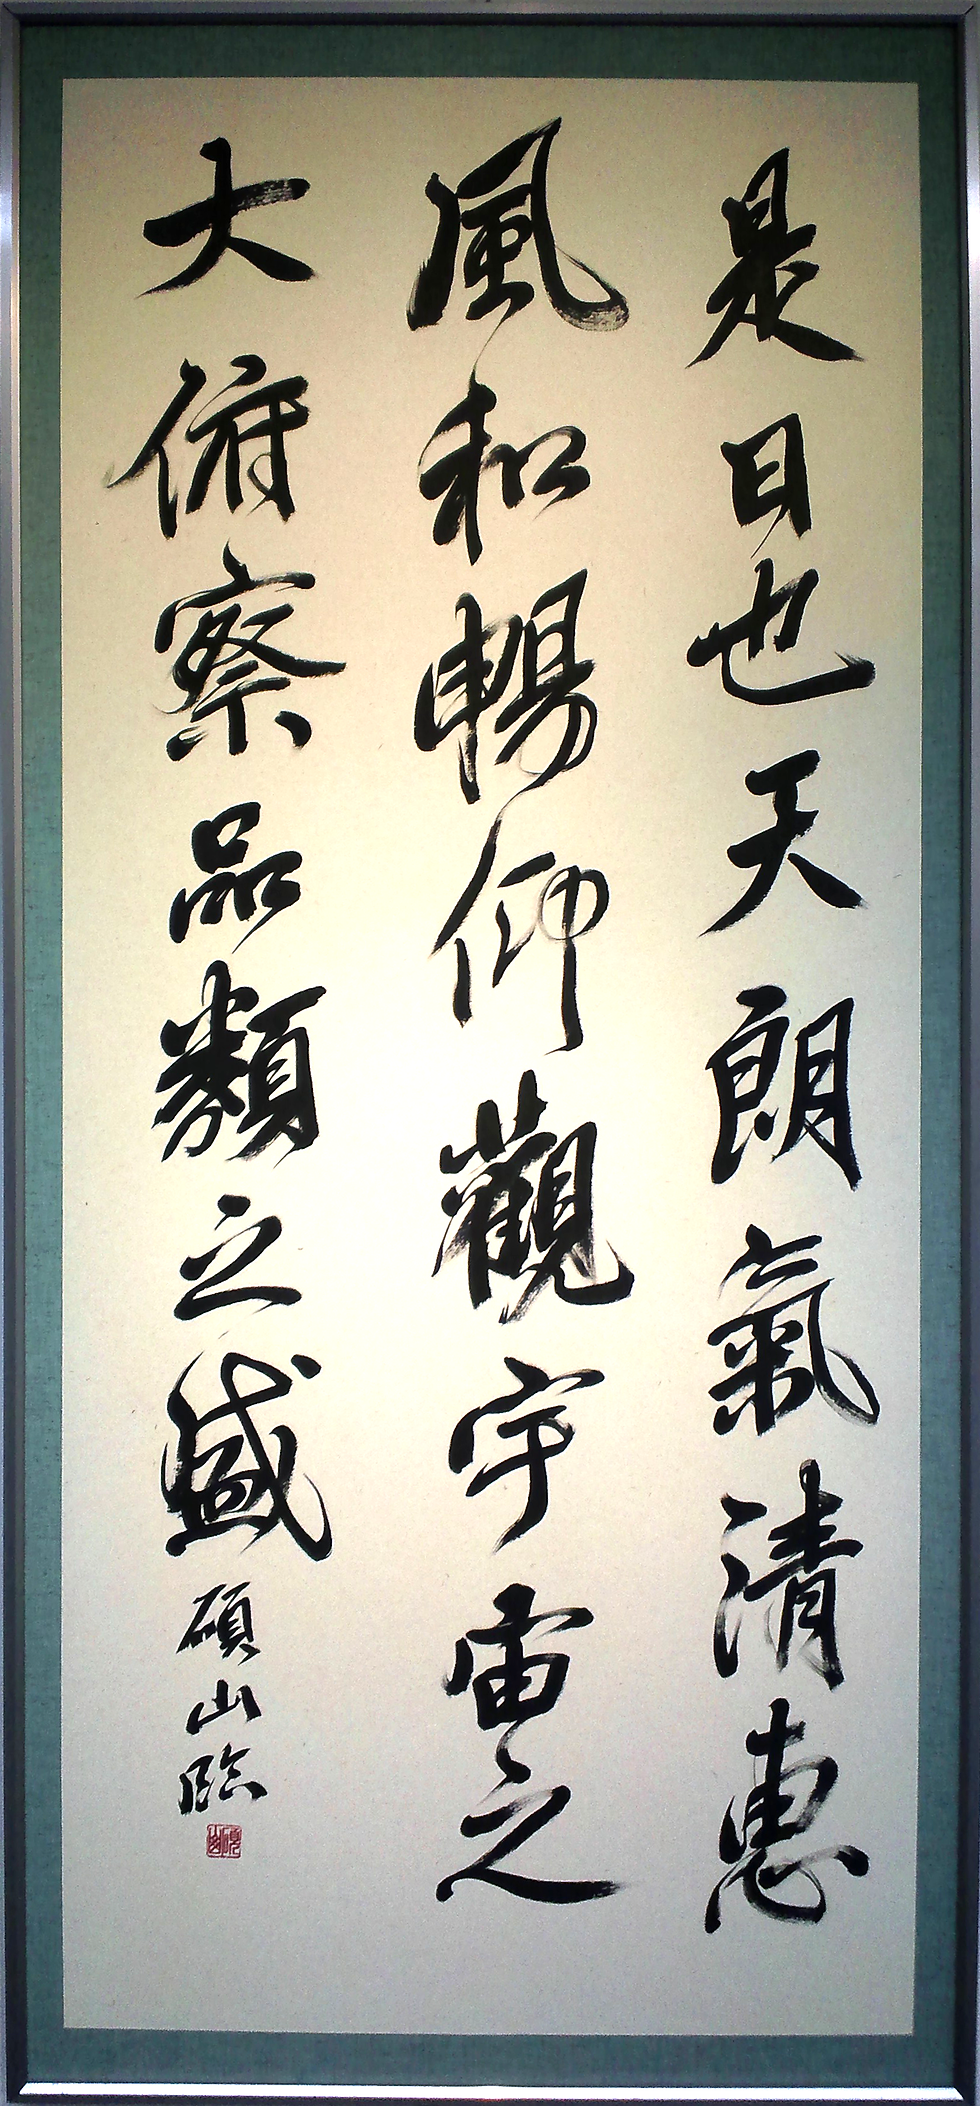 是日也天朗氣清惠
風和暢仰觀宇宙之
大俯察品類之盛
碩山臨